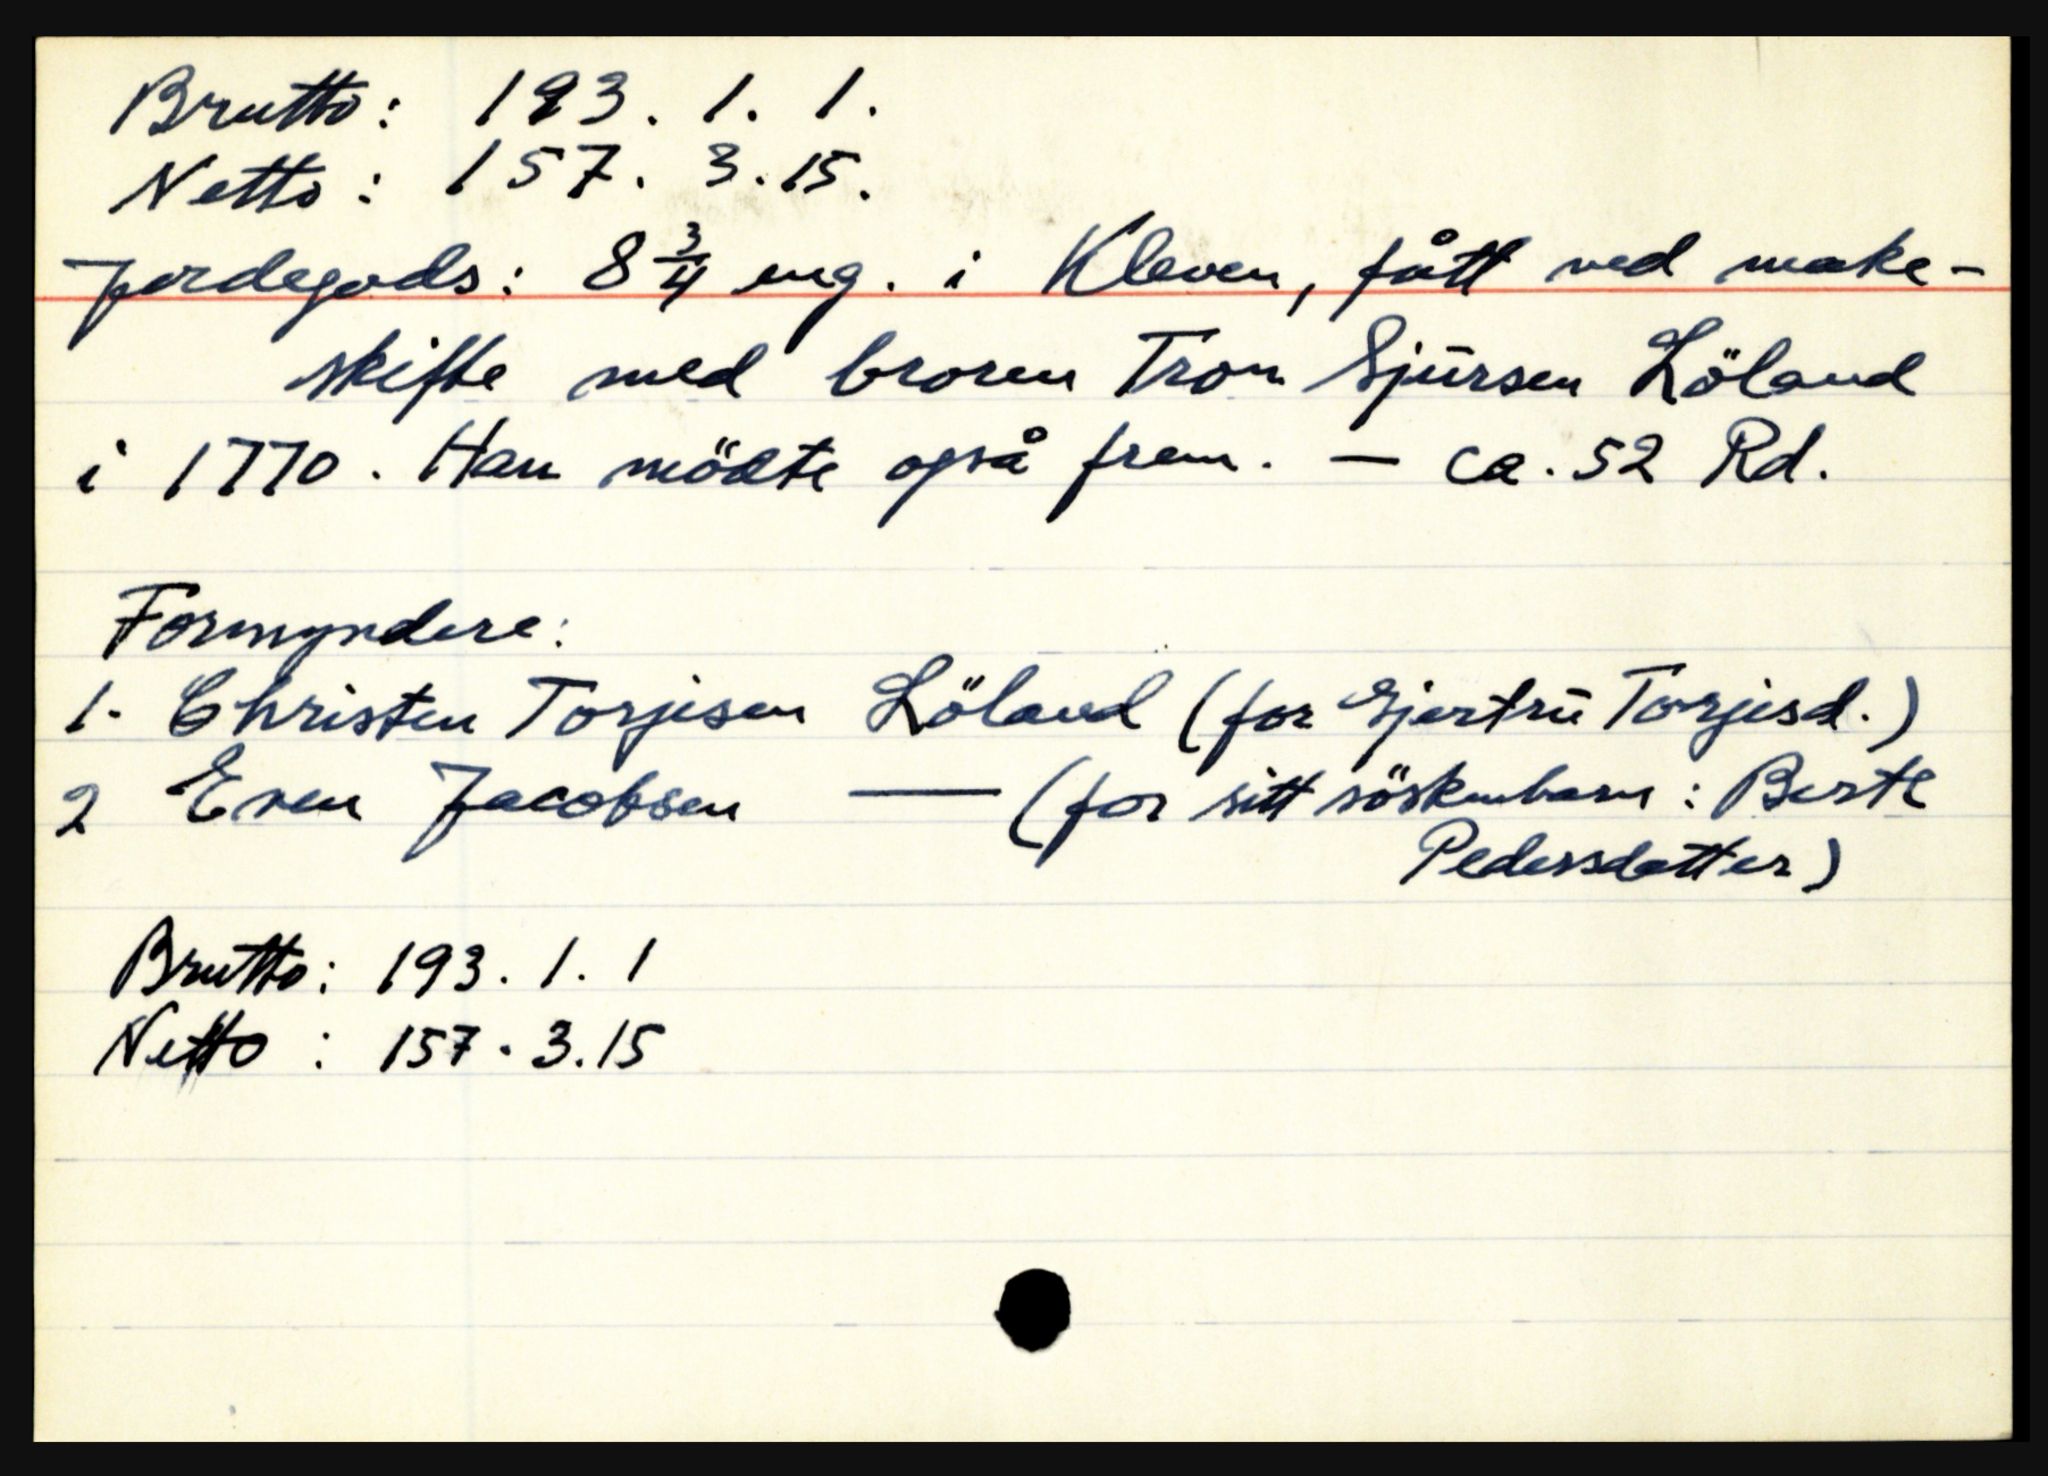 Brutto: 193. 1. 1.
Netto: 157. 3. 15.
Jordegods: 8 3/4 eng. i Kleven, fått ved make-
skifte med broren Tron Sjursen Löland
i 1770. Han mödte også frem. — ca. 52 Rd.
Formyndere:
1. Christen Torjesen Löland (for Gjertrū Torjesd.)
2 Even Jacobsen — (for sitt söskenbarn: Berte
Pedersdatter)
Brutto: 193. 1. 1
Netto: 157. 3. 15